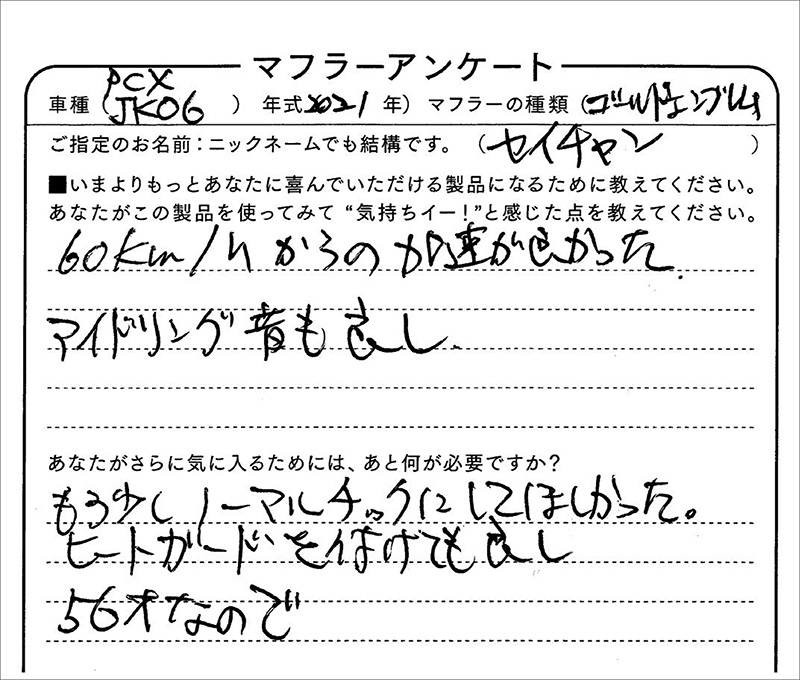 マフラーアンケート
PCX
車種（JK06）年式2021年）マフラーの種類（ゴールドエンブレム
ご指定のお名前：ニックネームでも結構です。（セイチャン）
■いまよりもっとあなたに喜んでいただける製品になるために教えてください。
あなたがこの製品を使ってみて“気持ちイー！”と感じた点を教えてください。
60Km/hからの加速が良かった.
アイドリング音も良し.
あなたがさらに気に入るためには、あと何が必要ですか？
もう少しノーマルチックにしてほしかった。
ヒートガードを付けても良し
56才なので